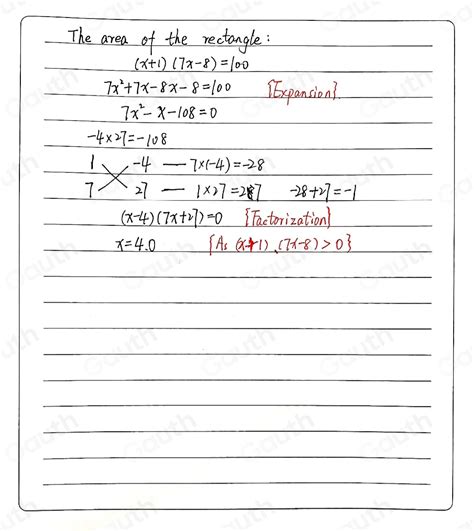 The area of the rectangle:
(x+1)(7x-8)=100
7x²+7x-8x-8=100 {Expansion}.
7x²-x-108=0
-4×27=-108
1 -4 — 7×(-4)=-28
7 27 — 1×27=27 -28+27=-1
(x-4)(7x+27)=0 {Factorization}
x=4.0 {As (x+1), (7x-8)>0}